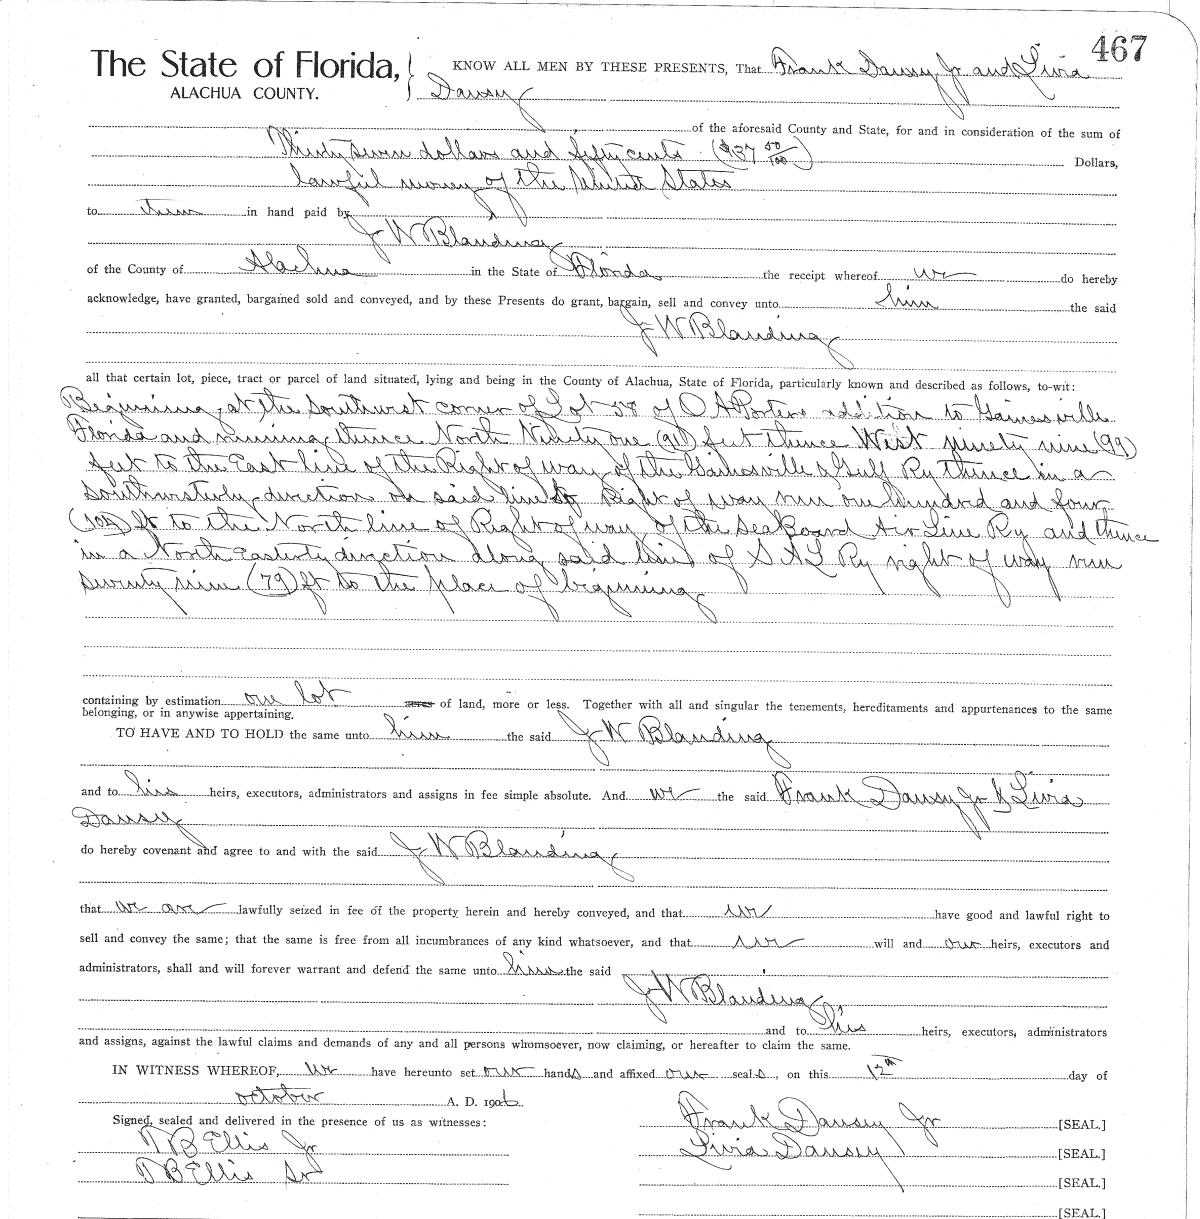 467
The State of Florida,
ALACHUA COUNTY.
KNOW ALL MEN BY THESE PRESENTS, That Frank Dausy Jr and Livia
Dausy
of the aforesaid County and State, for and in consideration of the sum of
Thirty seven dollars and fifty cents ($37 50/100) Dollars,
lawful money of the United States
to them in hand paid by
J W Blanding
of the County of Alachua in the State of Florida the receipt whereof we do hereby
acknowledge, have granted, bargained sold and conveyed, and by these Presents do grant, bargain, sell and convey unto him the said
J W Blanding
all that certain lot, piece, tract or parcel of land situated, lying and being in the County of Alachua, State of Florida, particularly known and described as follows, to-wit:
Beginning at the southwest corner of Lot 38 of O A Porters addition to Gainesville
Florida and running thence North Ninety one (91) feet thence West ninety nine (99)
feet to the East line of the Right of way of the Gainesville & Gulf Ry thence in a
Southwesterly direction on said line of Right of way run one hundred and four
(104) ft to the North line of Right of way of the Seaboard Air Line Ry and thence
in a North Easterly direction along said line of S A L Ry right of way run
seventy nine (79) ft to the place of beginning
containing by estimation one lot acres of land, more or less. Together with all and singular the tenements, hereditaments and appurtenances to the same
belonging, or in anywise appertaining.
TO HAVE AND TO HOLD the same unto him the said J W Blanding
and to his heirs, executors, administrators and assigns in fee simple absolute. And we the said Frank Dausy Jr & Livia
Dausy
do hereby covenant and agree to and with the said J W Blanding
that we are lawfully seized in fee of the property herein and hereby conveyed, and that we have good and lawful right to
sell and convey the same; that the same is free from all incumbrances of any kind whatsoever, and that we will and our heirs, executors and
administrators, shall and will forever warrant and defend the same unto him the said
J W Blanding
and to his heirs, executors, administrators
and assigns, against the lawful claims and demands of any and all persons whomsoever, now claiming, or hereafter to claim the same.
IN WITNESS WHEREOF, we have hereunto set our hands and affixed our seals, on this 12th day of
October A. D. 1906.
Signed, sealed and delivered in the presence of us as witnesses:
Frank Dausy Jr [SEAL.]
T B Ellis Jr
Livia Dausy [SEAL.]
T B Ellis Sr
[SEAL.]
[SEAL.]